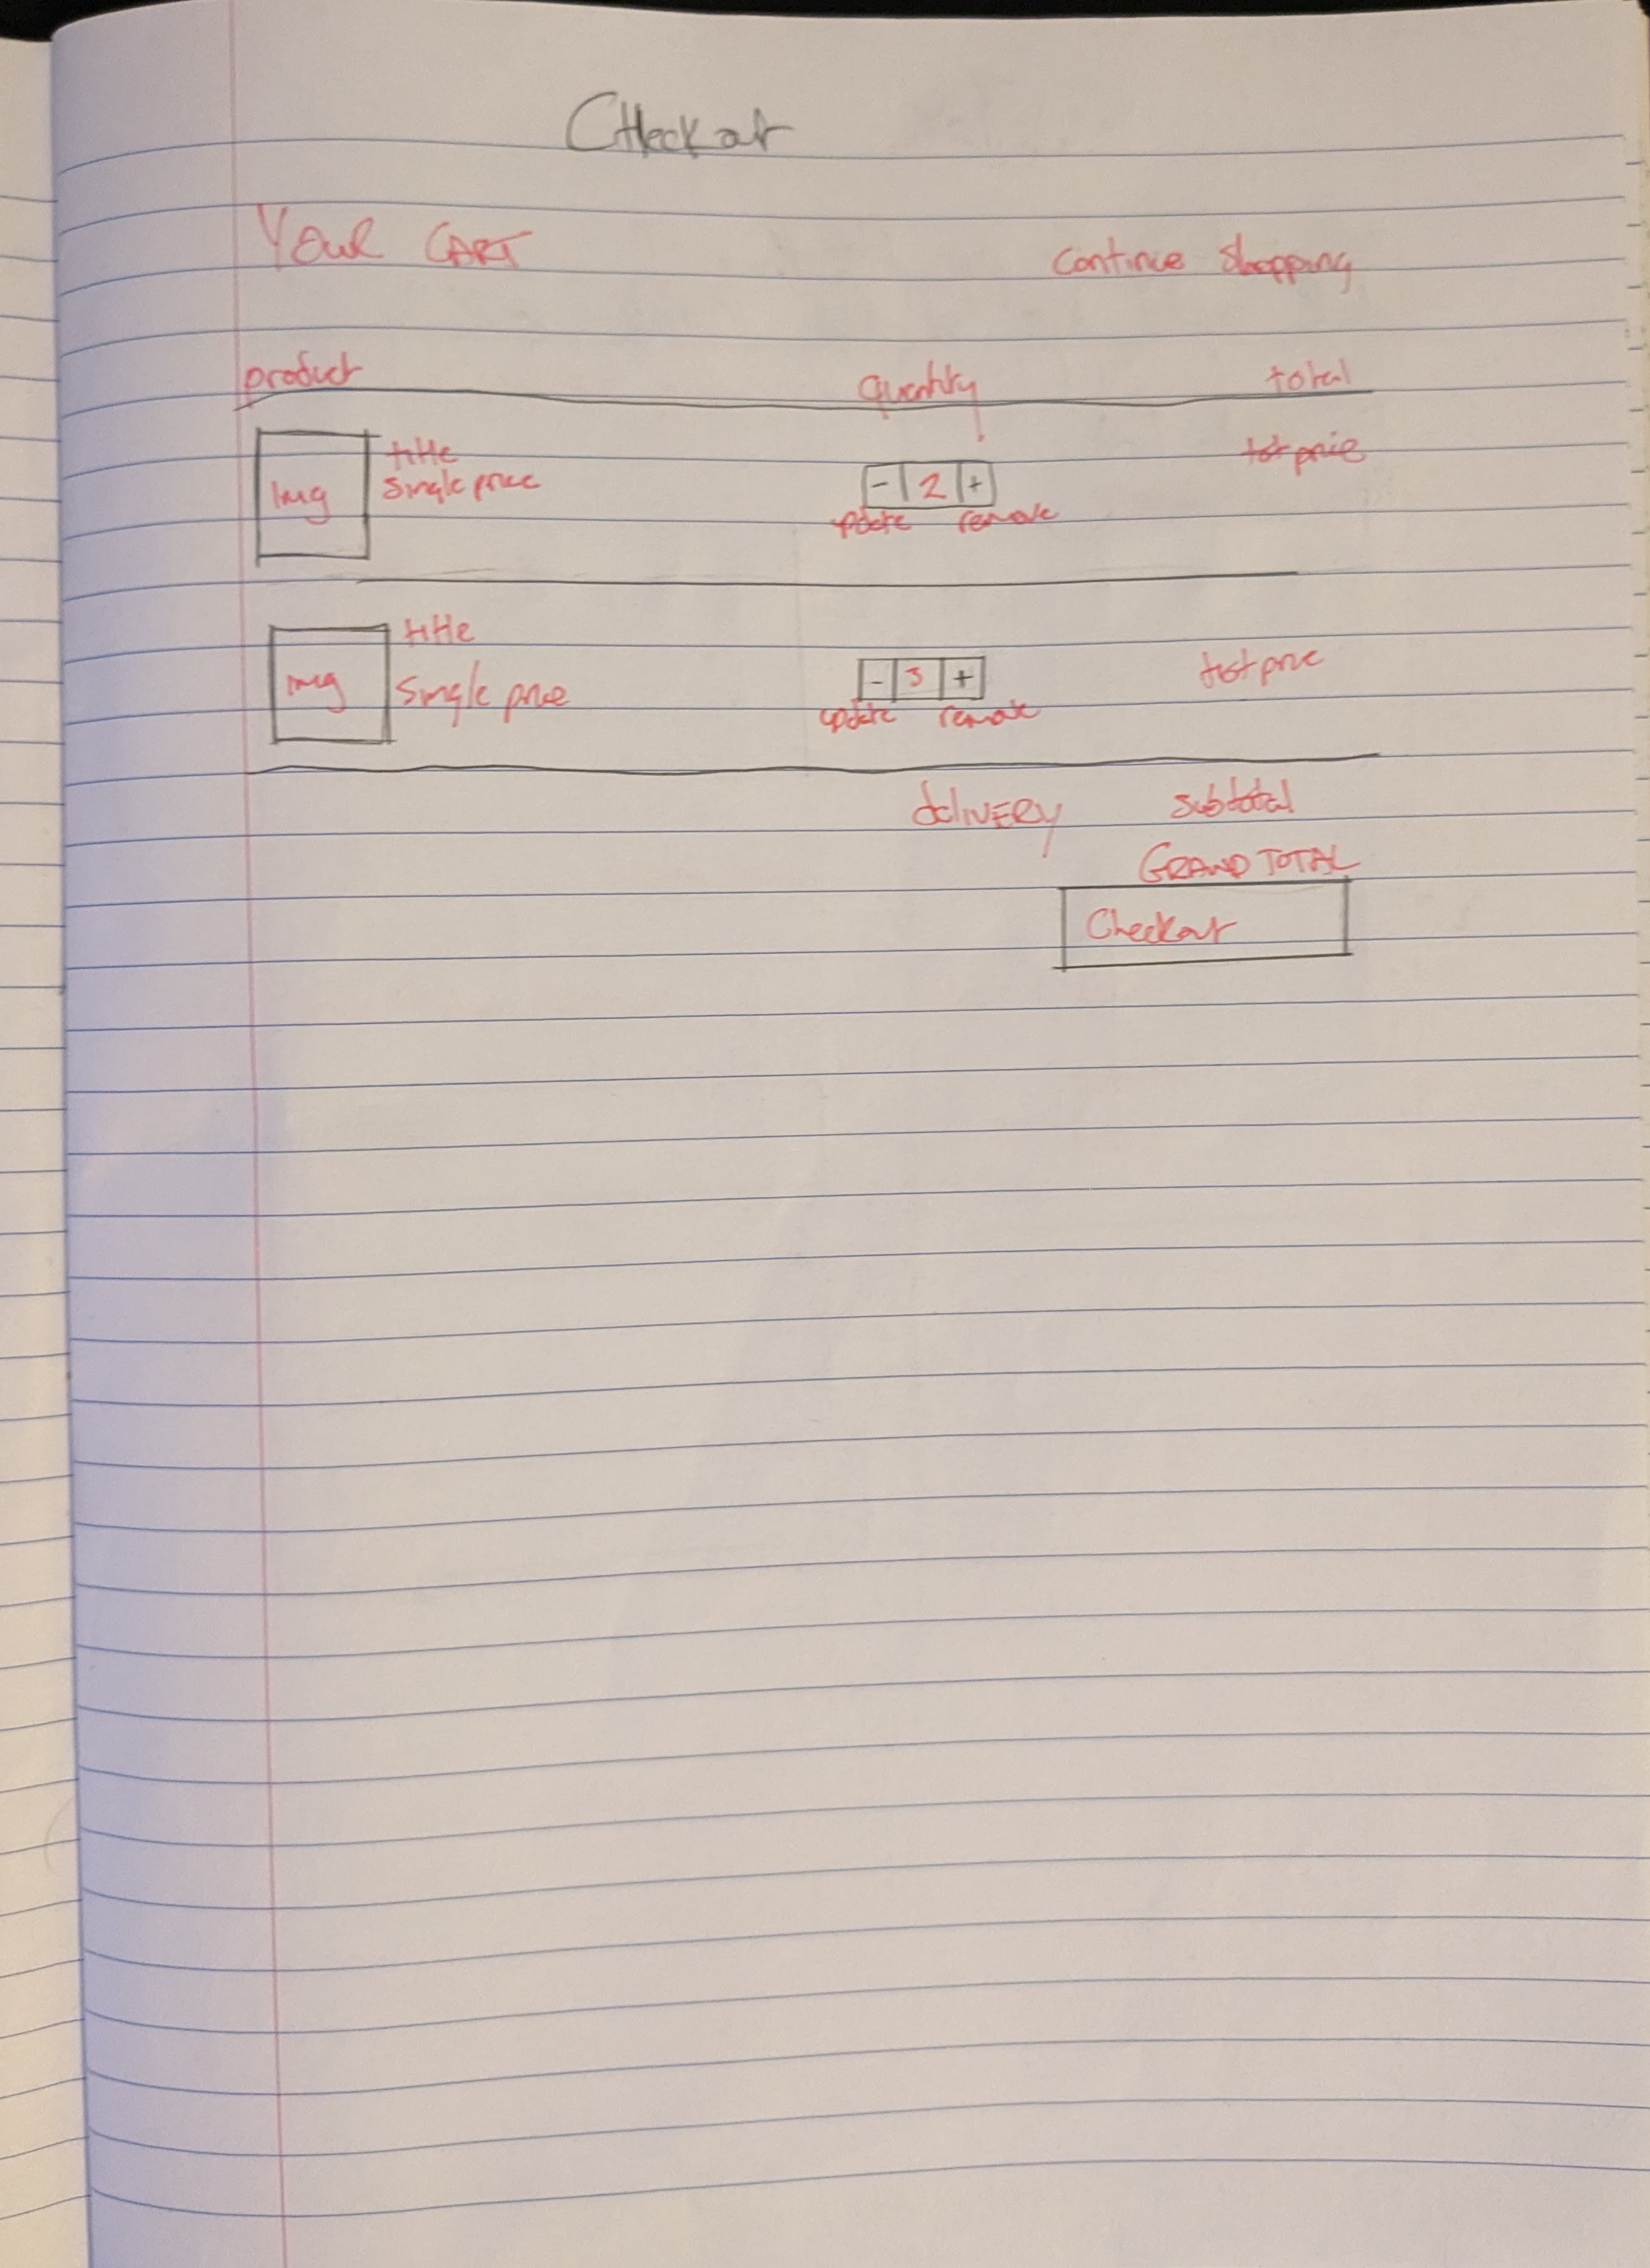 Checkout
YOUR CART continue shopping
product Quantity total
img title
single price - 2 + tot price
update remove
img title
single price - 3 + tot price
update remove
delivery subtotal
GRAND TOTAL
Checkout